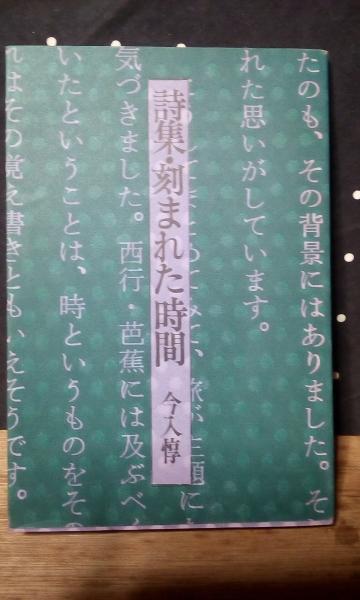 たのも、その背景にはありました。そ
れた思いがしています。
てみて、旅が主題に
詩集・刻まれた時間
今入惇
気づきました。西行・芭蕉には及ぶべく
いたということは、時というものをその
れはその覚え書きともいえそうです。